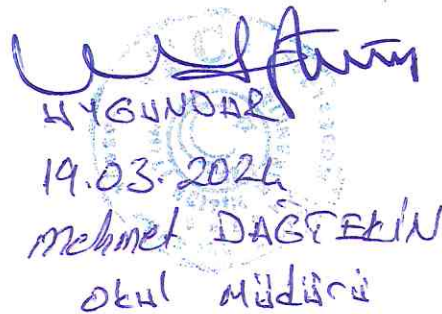 UYGUNDUR
19.03.2024
Mehmet DAĞTEKİN
Okul Müdürü